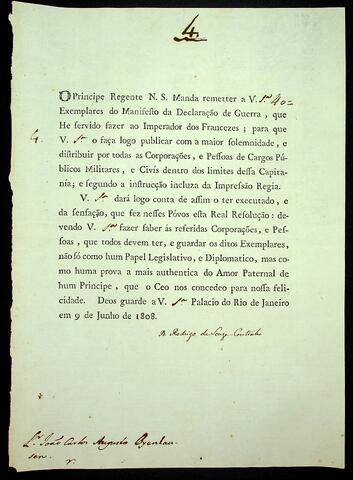 4.
O Principe Regente N. S. Manda remetter a V. S.ª 40=
Exemplares do Manifesto da Declaração de Guerra, que
He servido fazer ao Imperador dos Francezes; para que
4. V. S.ª o faça logo publicar com a maior solemnidade, e
distribuir por todas as Corporações, e Pessoas de Cargos Pú-
blicos Militares, e Civís dentro dos limites dessa Capita-
nia; e segundo a instrucção incluza da Impressão Regia.
V. S.ª dará logo conta de assim o ter executado, e
da sensação, que fez nesses Póvos esta Real Resolução: de-
vendo V. S.ª fazer saber ás referidas Corporações, e Pes-
soas, que todos devem ter, e guardar os ditos Exemplares,
não só como hum Papel Legislativo, e Diplomatico, mas co-
mo huma prova a mais authentica do Amor Paternal de
hum Principe, que o Ceo nos concedeo para nossa feli-
cidade. Deos guarde a V. S.ª Palacio do Rio de Janeiro
em 9 de Junho de 1808.
D. Rodrigo de Souza Coutinho
S.r João Carlos Augusto Oyenhau-
sen.